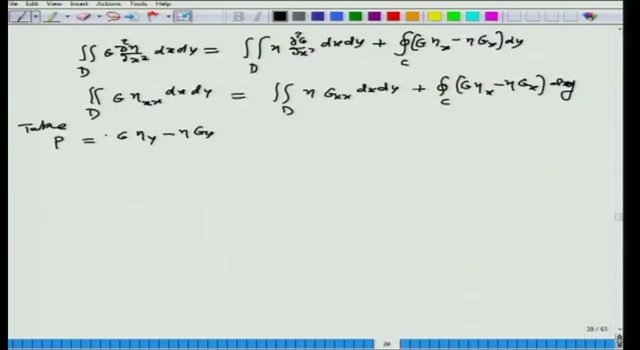 View Insert Actions Tools Help
∬_D G ∂²η/∂x² dxdy = ∬_D η ∂²G/∂x² dxdy + ∮_C (G η_x − η G_x) dy
∬_D G η_xx dxdy = ∬_D η G_xx dxdy + ∮_C (G η_x − η G_x) dy
Take
P = G η_y − η G_y